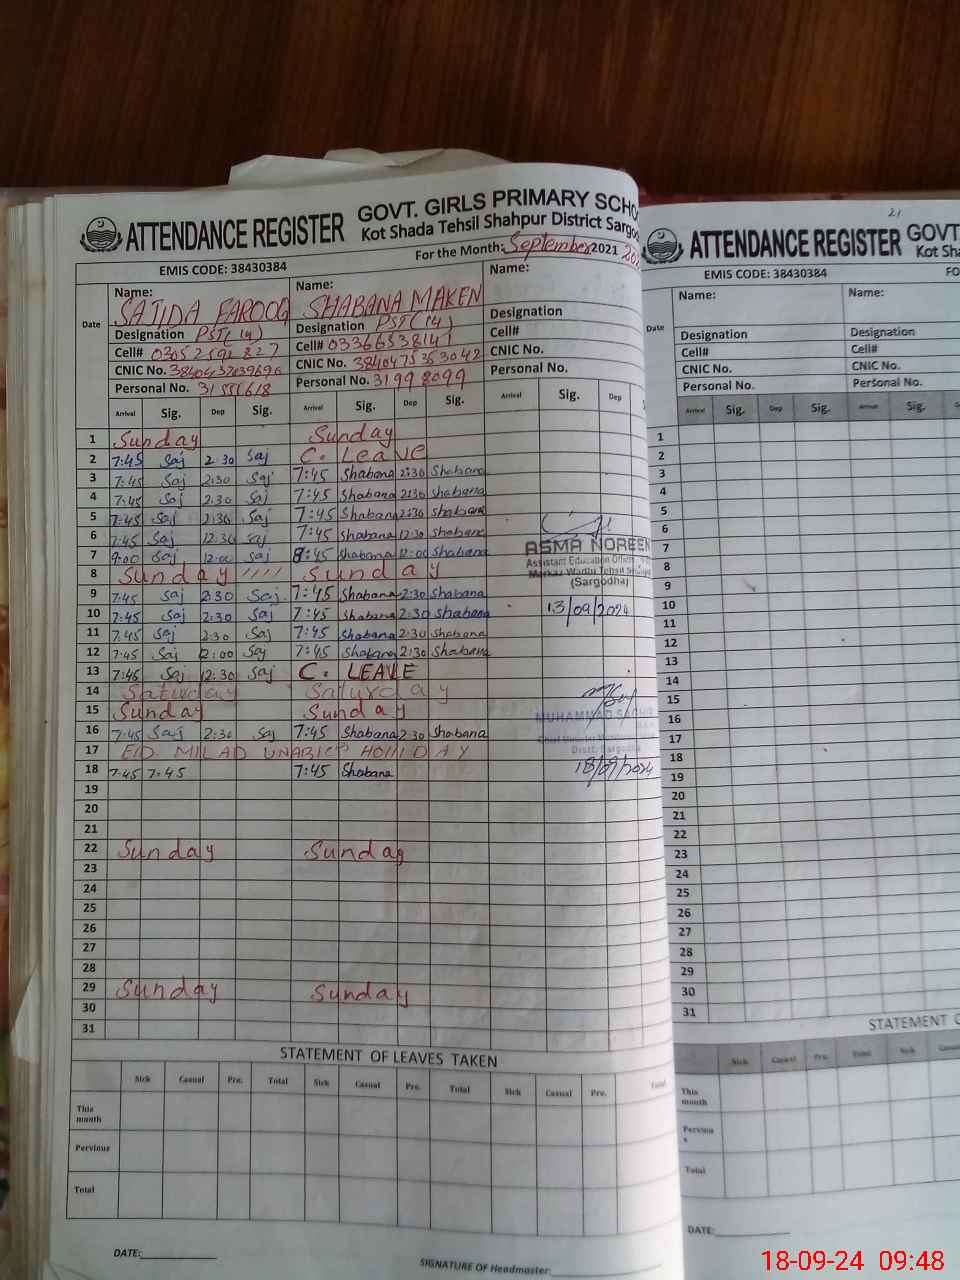 ATTENDANCE REGISTER GOVT. GIRLS PRIMARY SCHO
Kot Shada Tehsil Shahpur District Sargo
EMIS CODE: 38430384 For the Month: September 2021
Date Name: Name: Name:
SAJIDA FAROOQ SHABANA MAKEN
Designation PST(14) Designation PST(14) Designation
Cell# Cell# 03366538147 Cell#
CNIC No. CNIC No. CNIC No.
Personal No. Personal No. 31998099 Personal No.
Arrival Sig. Dep Sig. Arrival Sig. Dep Sig. Arrival Sig. Dep
1 Sunday Sunday
2 7:45 Saj 2:30 Saj C. Leave
3 7:45 Saj 2:30 Saj 7:45 Shabana 2:30 Shabana
4 7:45 Saj 2:30 Saj 7:45 Shabana 2:30 Shabana
5 7:45 Saj 2:30 Saj 7:45 Shabana 2:30 Shabana
6 7:45 Saj 12:30 Saj 7:45 Shabana 12:30 Shabana
7 9:00 Saj 12:00 Saj 8:45 Shabana 12:00 Shabana
ASMA NOREEN
Assistant Education Officer
Markaz Wadhi Tehsil
(Sargodha)
8 Sunday Sunday
9 7:45 Saj 2:30 Saj 7:45 Shabana 2:30 Shabana
13/09/2024
10 7:45 Saj 2:30 Saj 7:45 Shabana 2:30 Shabana
11 7:45 Saj 2:30 Saj 7:45 Shabana 2:30 Shabana
12 7:45 Saj 2:00 Saj 7:45 Shabana 2:30 Shabana
13 7:45 Saj 12:30 Saj C. LEAVE
14 Saturday Saturday
15 Sunday Sunday
MUHAMMAD
16 7:45 Saj 2:30 Saj 7:45 Shabana 2:30 Shabana
17 EID MILAD UNABI HOLIDAY
18 7:45 7:45 7:45 Shabana
18/09/2024
19
20
21
22 Sunday Sunday
23
24
25
26
27
28
29 Sunday Sunday
30
31
STATEMENT OF LEAVES TAKEN
Sick Casual Pre. Total Sick Casual Pre. Total Sick Casual Pre. Total
This month
Pervious
Total
DATE:
SIGNATURE OF Headmaster:
21
ATTENDANCE REGISTER GOVT
Kot Sha
EMIS CODE: 38430384 FO
Date Name: Name:
Designation Designation
Cell# Cell#
CNIC No. CNIC No.
Personal No. Personal No.
Arrival Sig. Dep Sig. Arrival Sig.
1
2
3
4
5
6
7
8
9
10
11
12
13
14
15
16
17
18
19
20
21
22
23
24
25
26
27
28
29
30
31
STATEMENT O
Sick Casual Pre. Total Sick Casual
This month
Pervious
Total
DATE:
18-09-24 09:48